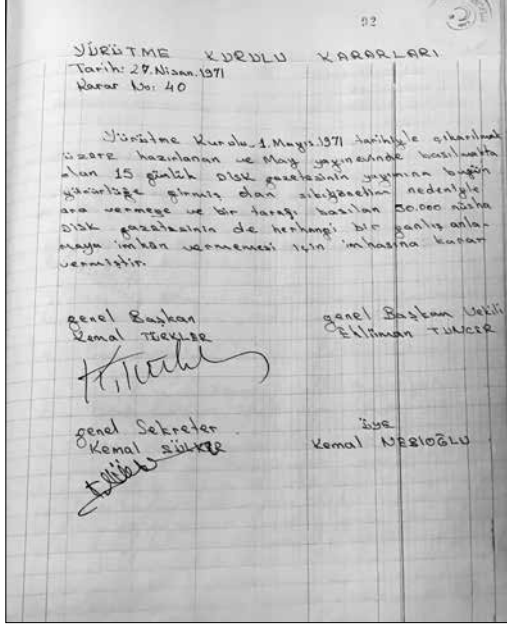 92
YÜRÜTME KURULU KARARLARI
Tarih: 27.Nisan.1971
Karar No: 40
Yürütme Kurulu 1.Mayıs.1971 tarihiyle çıkarılmak
üzere hazırlanan ve May yayınevinde basılmakta
olan 15 günlük DİSK gazetesinin yayımına bugün
yürürlüğe girmiş olan sıkıyönetim nedeniyle
ara vermeye ve bir tarafı basılan 50.000 nüsha
DİSK gazetesinin de herhangi bir yanlış anla-
maya imkân vermemesi için imhasına karar
vermiştir.
genel Başkan
Kemal TÜRKLER
genel Başkan Vekili
Ehliiman TUNCER
genel Sekreter
Kemal SÜLKER
üye
Kemal NEBİOĞLU